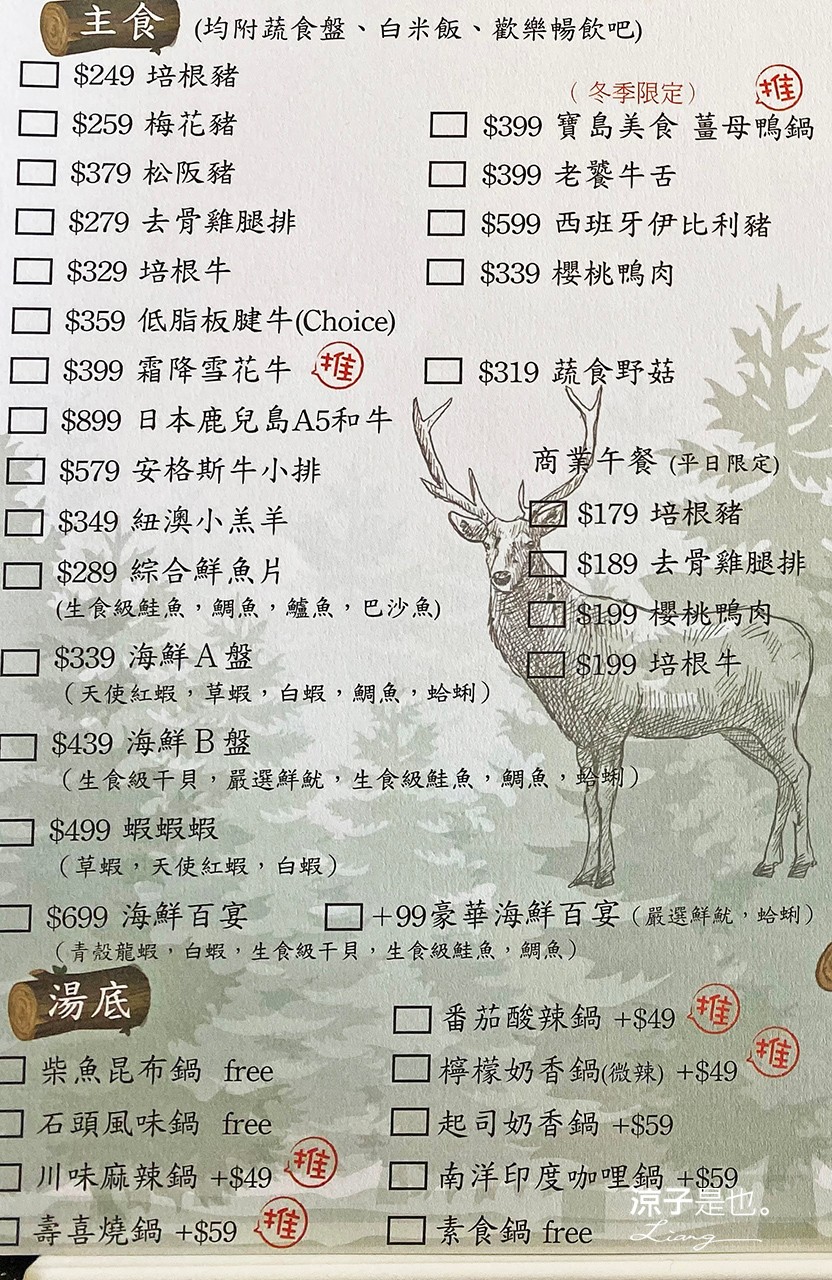 主食 (均附蔬食盤、白米飯、歡樂暢飲吧)
$249 培根豬
$259 梅花豬
$379 松阪豬
$279 去骨雞腿排
$329 培根牛
$359 低脂板腱牛(Choice)
$399 霜降雪花牛 推
$899 日本鹿兒島A5和牛
$579 安格斯牛小排
$349 紐澳小羔羊
$289 綜合鮮魚片
(生食級鮭魚，鯛魚，鱸魚，巴沙魚)
$339 海鮮A盤
（天使紅蝦，草蝦，白蝦，鯛魚，蛤蜊）
$439 海鮮B盤
（生食級干貝，嚴選鮮魷，生食級鮭魚，鯛魚，蛤蜊）
$499 蝦蝦蝦
（草蝦，天使紅蝦，白蝦）
$699 海鮮百宴
+99豪華海鮮百宴（嚴選鮮魷，蛤蜊）
（青殼龍蝦，白蝦，生食級干貝，生食級鮭魚，鯛魚）
（冬季限定） 推
$399 寶島美食 薑母鴨鍋
$399 老饕牛舌
$599 西班牙伊比利豬
$339 櫻桃鴨肉
$319 蔬食野菇
商業午餐 (平日限定)
$179 培根豬
$189 去骨雞腿排
$199 櫻桃鴨肉
$199 培根牛
湯底
柴魚昆布鍋 free
石頭風味鍋 free
川味麻辣鍋 +$49 推
壽喜燒鍋 +$59 推
番茄酸辣鍋 +$49 推
檸檬奶香鍋(微辣) +$49 推
起司奶香鍋 +$59
南洋印度咖哩鍋 +$59
素食鍋 free
涼子是也。
Liang